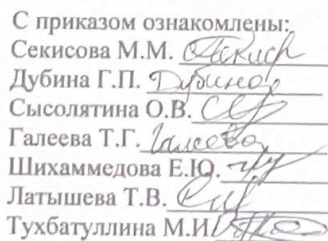 С приказом ознакомлены:
Секисова М.М.
Дубина Г.П. Дубина
Сысолятина О.В.
Галеева Т.Г. Галеева
Шихаммедова Е.Ю.
Латышева Т.В.
Тухбатуллина М.И.